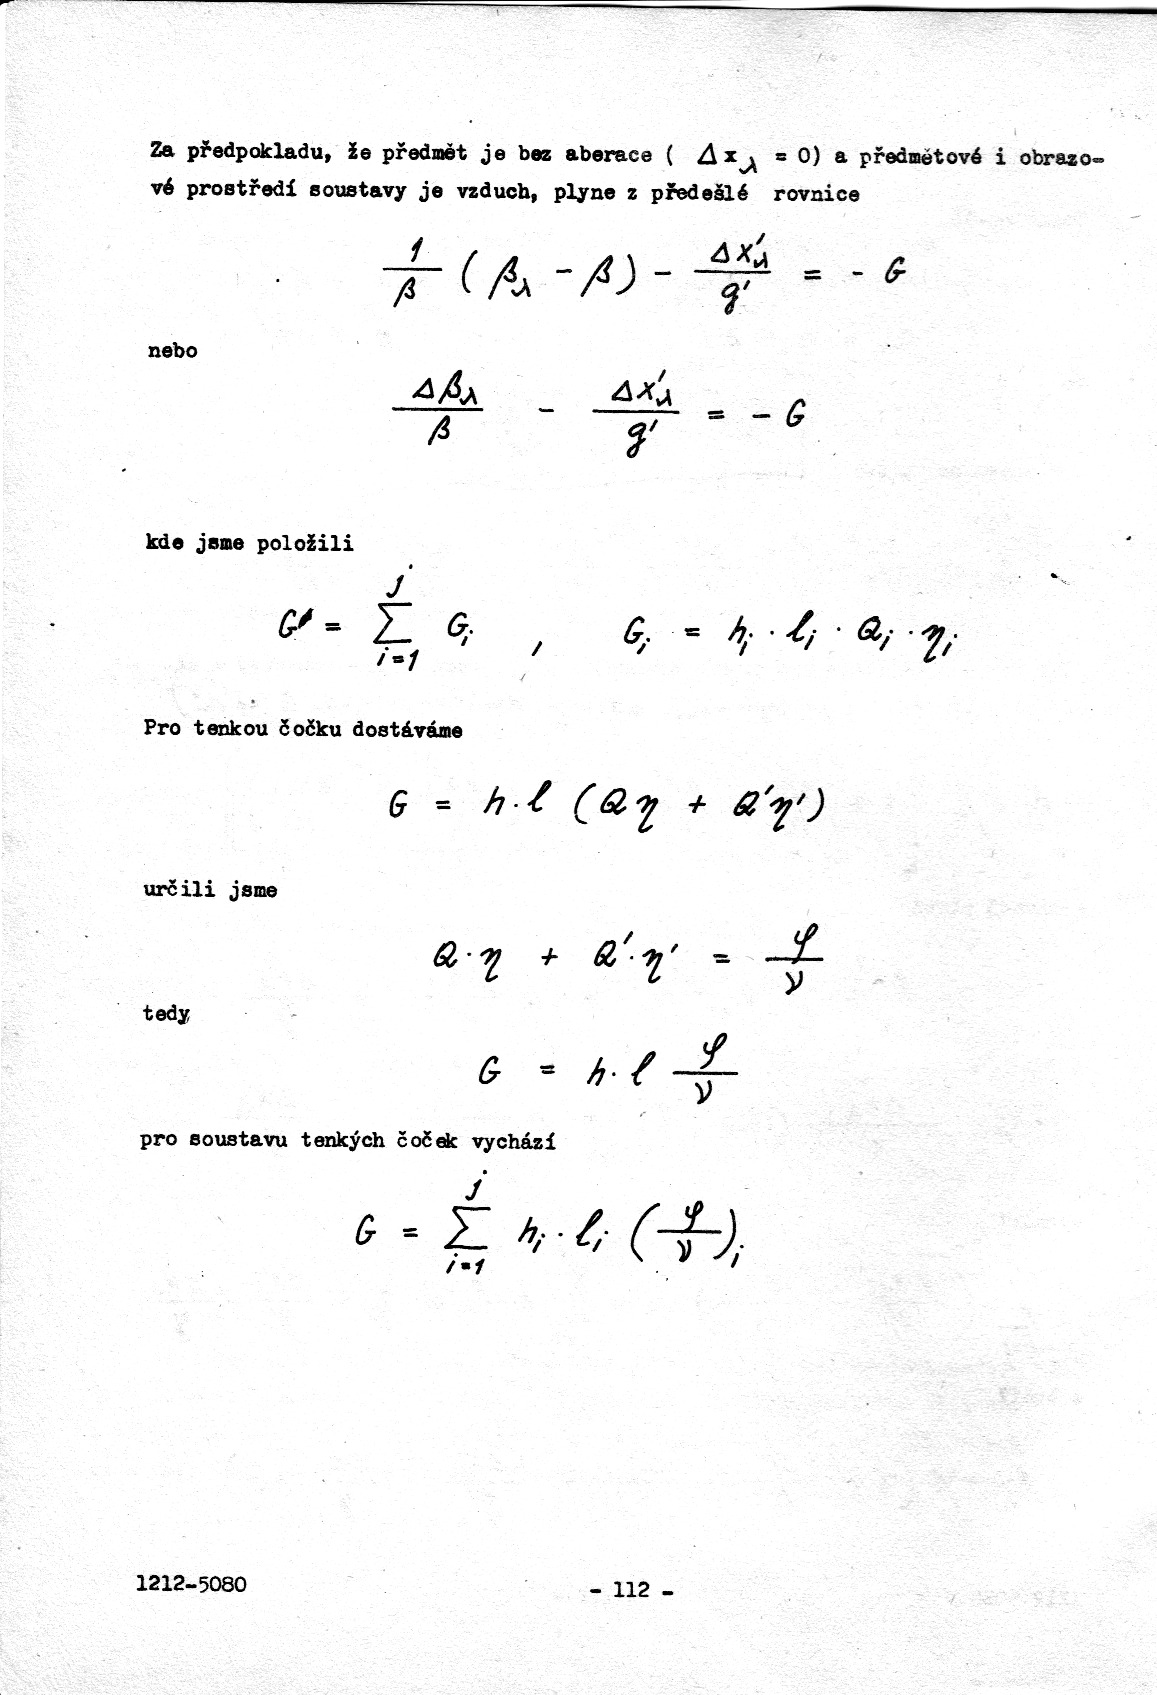 Za předpokladu, že předmět je bez aberace ( Δx_λ = 0) a předmětové i obrazo-
vé prostředí soustavy je vzduch, plyne z předešlé rovnice
1/β ( β_λ - β ) - Δx'_λ/g' = - G
nebo
Δβ_λ/β - Δx'_λ/g' = - G
kde jsme položili
G = ∑_{i=1}^{j} G_i , G_i = h_i · l_i · Q_i · η_i
Pro tenkou čočku dostáváme
G = h · l (Qη + Q'η')
určili jsme
Q · η + Q' · η' = φ/ν
tedy
G = h · l φ/ν
pro soustavu tenkých čoček vychází
G = ∑_{i=1}^{j} h_i · l_i (φ/ν)_i
1212-5080
- 112 -